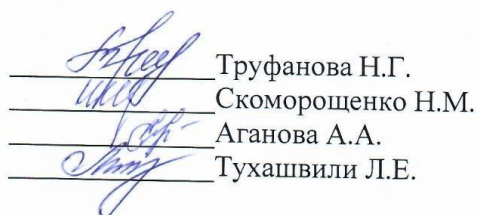 Труфанова Н.Г.
Скоморощенко Н.М.
Аганова А.А.
Тухашвили Л.Е.